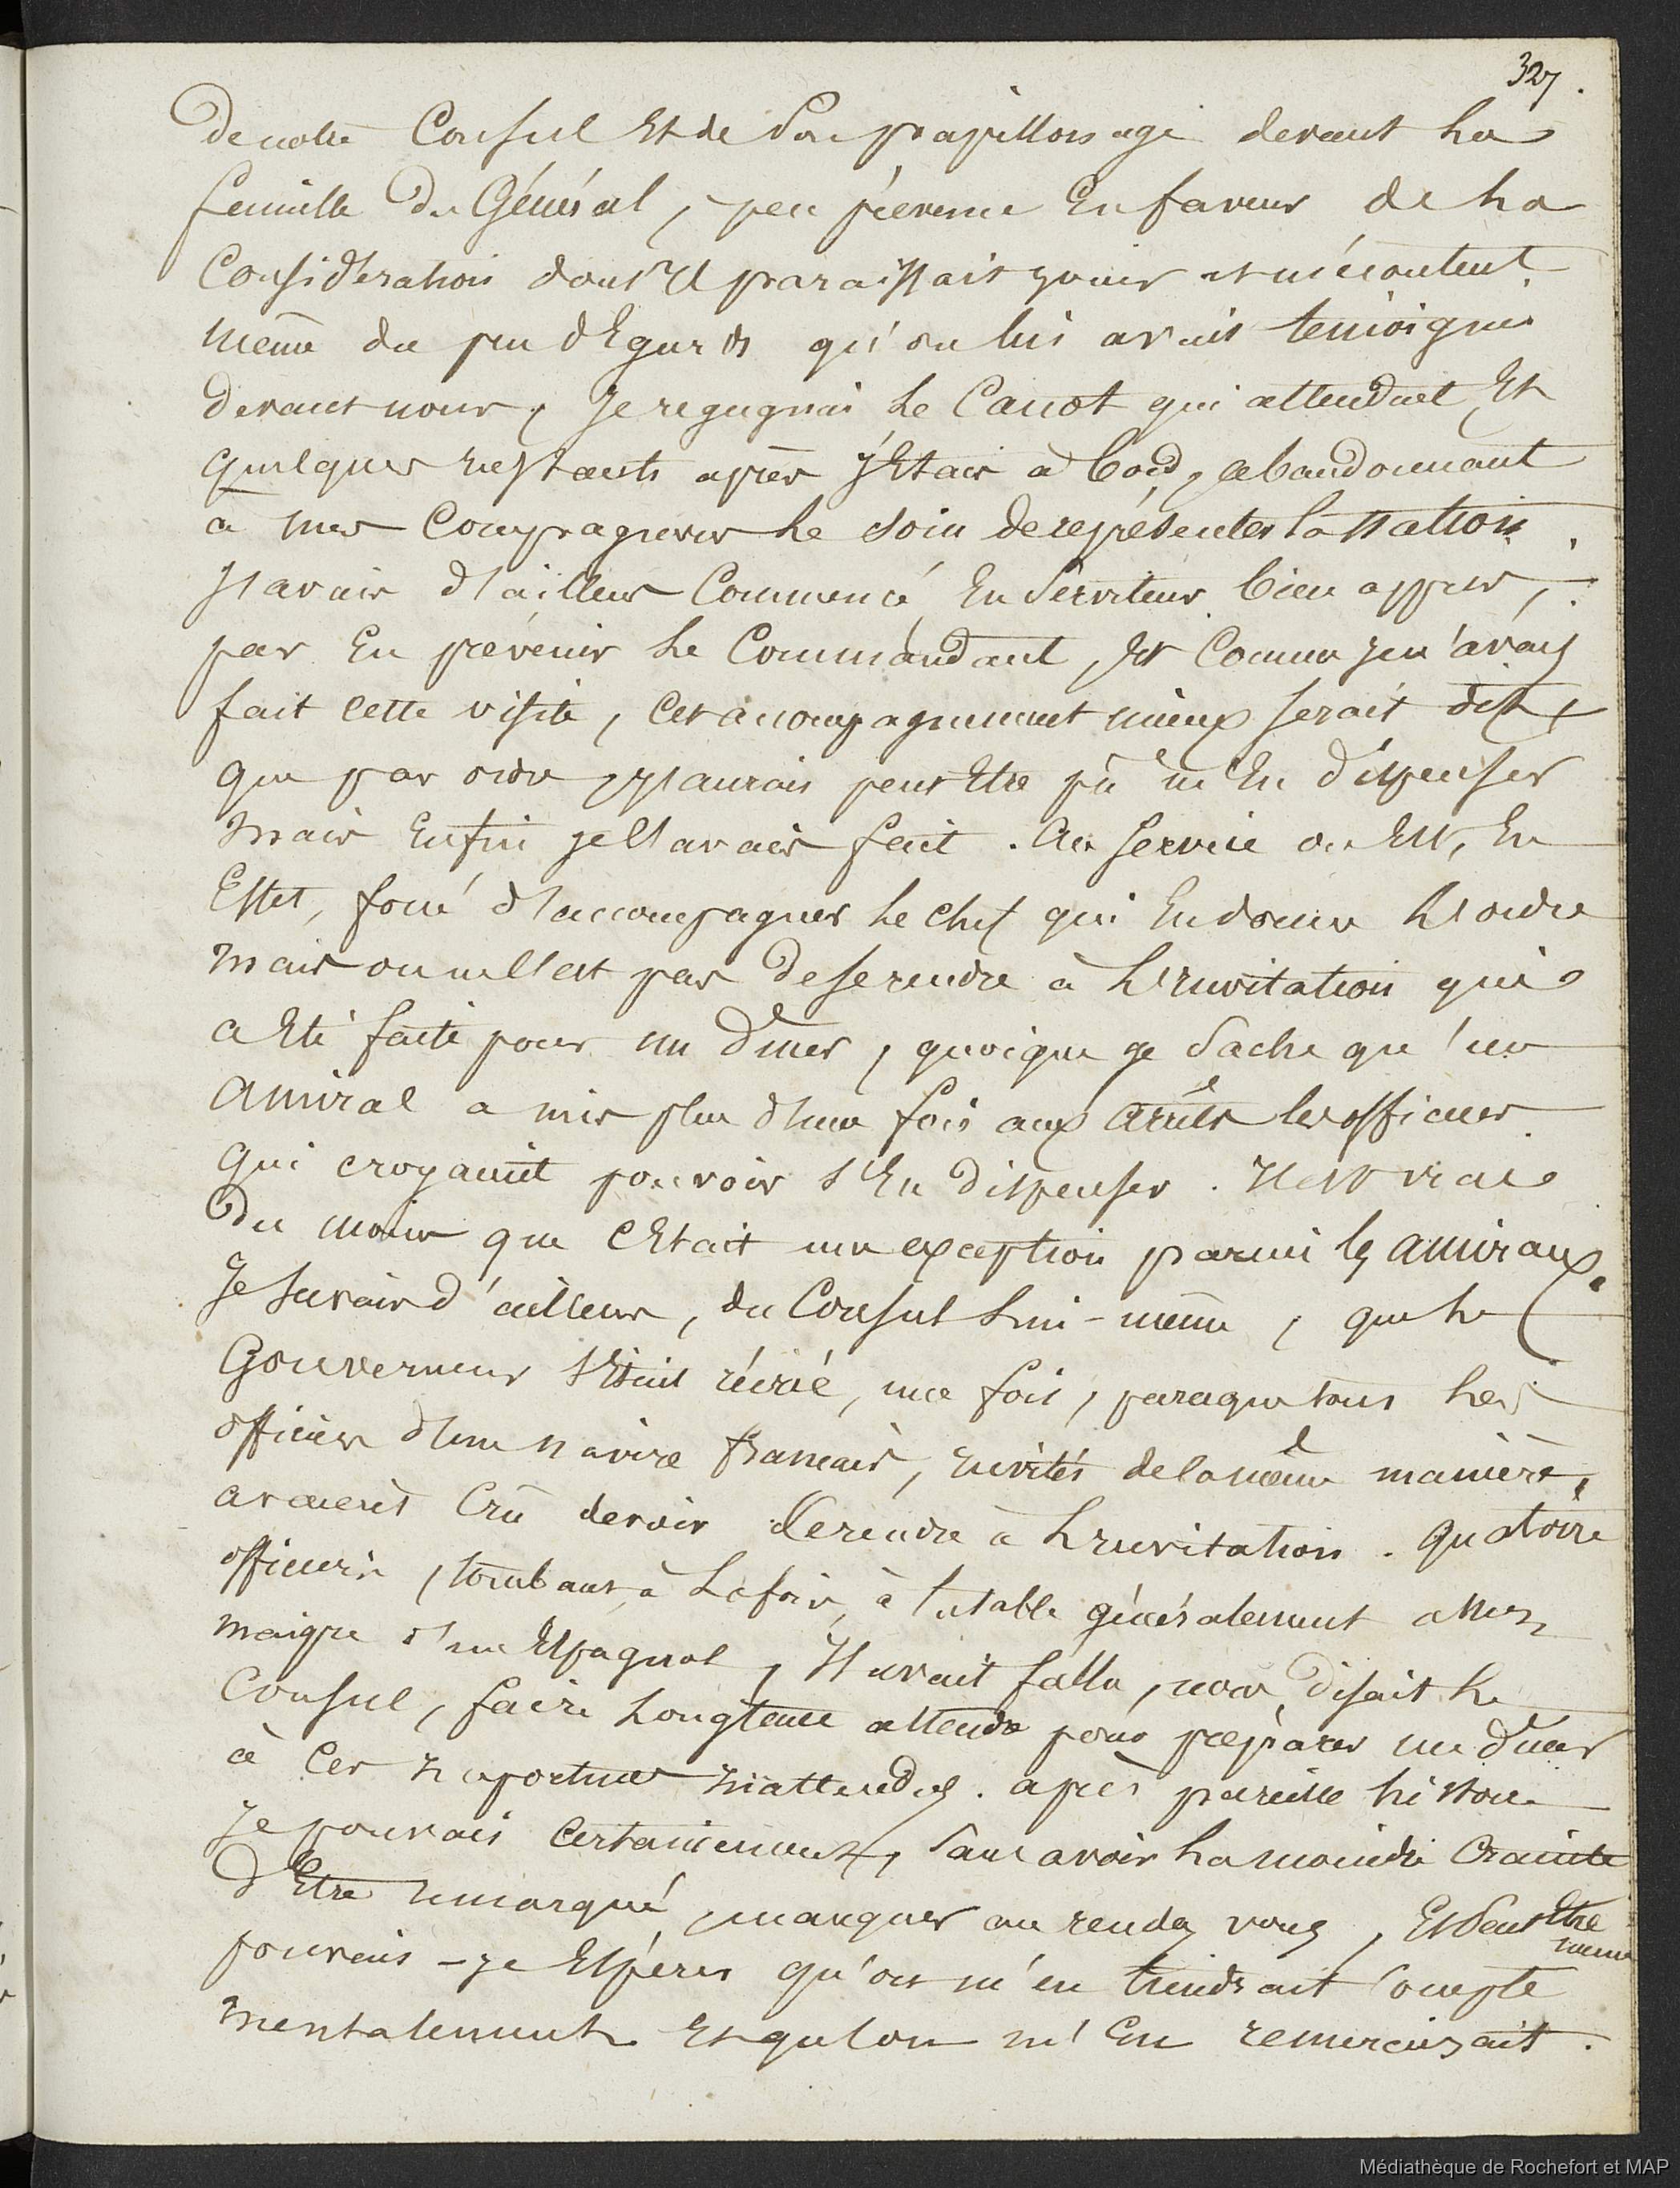 327.
De notre Consul Et de Son papillonage devant La
famille Du Général, peu prévenu En faveur de La
Considération dont Il paraissait jouir et mécontent
même du peu d'Egards qu'on lui avait témoigné
devant nous, Je regagnai Le Canot qui attendait Et
quelques instants après J'Etais à bord, abandonnant
à mes Compagnons Le soin de représenter la Nation.
J'avais d'ailleurs Commencé, En Serviteur bien appris,
par En prévenir Le Commandant, Et Comme je n'avais
fait cette visite, Cet accompagnement mieux serait dit,
que par ordre, j'aurais peut Etre pû m'En dispenser
mais Enfin je l'avais fait. Au Service on Est, En
Effet, forcé d'accompagner Le chef qui En donne L'ordre
mais on ne l'est pas De se rendre à L'invitation qui
a Eté faite pour un Dîner, quoique je Sache qu'un
amiral a mis plus d'une fois aux arrêts les officiers
qui croyaient pouvoir s'En dispenser. Il est vrai
Du moins que C'Etait une exception parmi les amiraux.
Je Savais d'ailleurs, du Consul Lui-même, que Le
Gouverneur S'Etait récrié, une fois, parceque tous Les
officiers d'un navire français, invités de la même manière,
avaient Crû devoir Se rendre à L'invitation. Quatorze
officiers, tombant, à La fois, à la table généralement assez
maigre d'un Espagnol, Il avait fallu, nous Disait Le
Consul, faire Longtems attendre pour préparer un dîner
à Ces importuns inattendus. après pareille histoire
Je pouvais Certainement, Sans avoir La moindre Crainte
D'Etre remarqué, manquer au rendez vous, Et Peut Etre
même
pouvais-je Espérer qu'on m'en tiendrait Compte
mentalement Et qu'on m'En remercierait.
Médiathèque de Rochefort et MAP